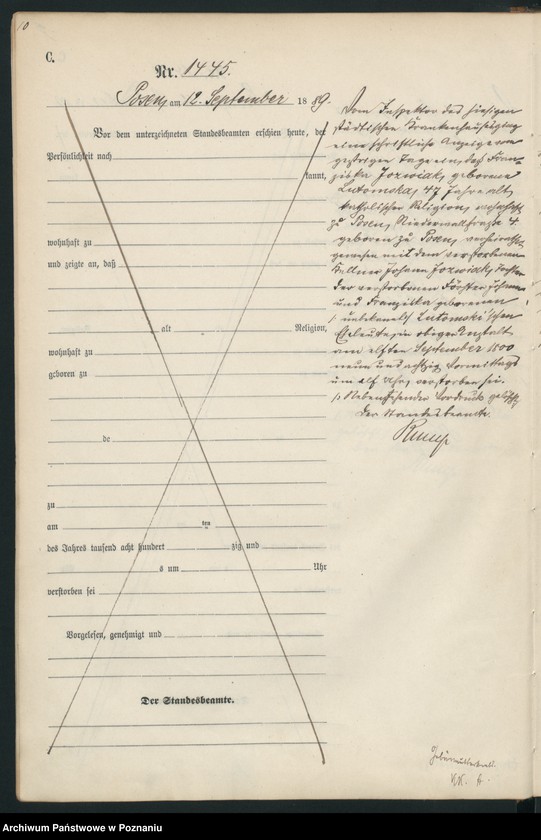 10
C.
Nr. 1445.
Posen, am 12. September 1889.
Vor dem unterzeichneten Standesbeamten erschien heute, der
Persönlichkeit nach
kannt,
wohnhaft zu
und zeigte an, daß
alt Religion,
wohnhaft zu
geboren zu
de
zu
am ten
des Jahres tausend acht hundert zig und
s um Uhr
verstorben sei
Vorgelesen, genehmigt und
Der Standesbeamte.
Vom Inspektor des hiesigen
städtischen Krankenhauses ging
eine schriftliche Anzeige vom
gestrigen Tage ein, daß Fran-
ziska Jozwiak, geborene
Lutomska, 47 Jahre alt,
katholischer Religion, wohnhaft
zu Posen, Niederwallstraße 4.
geboren zu Posen, verheirathet
gewesen mit dem verstorbenen
Kellner Johann Jozwiak, Tochter
der verstorbenen Förster Johann
und Franziska geborenen
unbekannt Lutomski'schen
Eheleute, in obiger Anstalt
am elften September 1800
neun und achtzig Vormittags
um elf Uhr, verstorben sei.
Nebenstehender Vordruck gelöscht.
Der Standesbeamte.
Archiwum Państwowe w Poznaniu
www.szukajwarchiwach.gov.pl